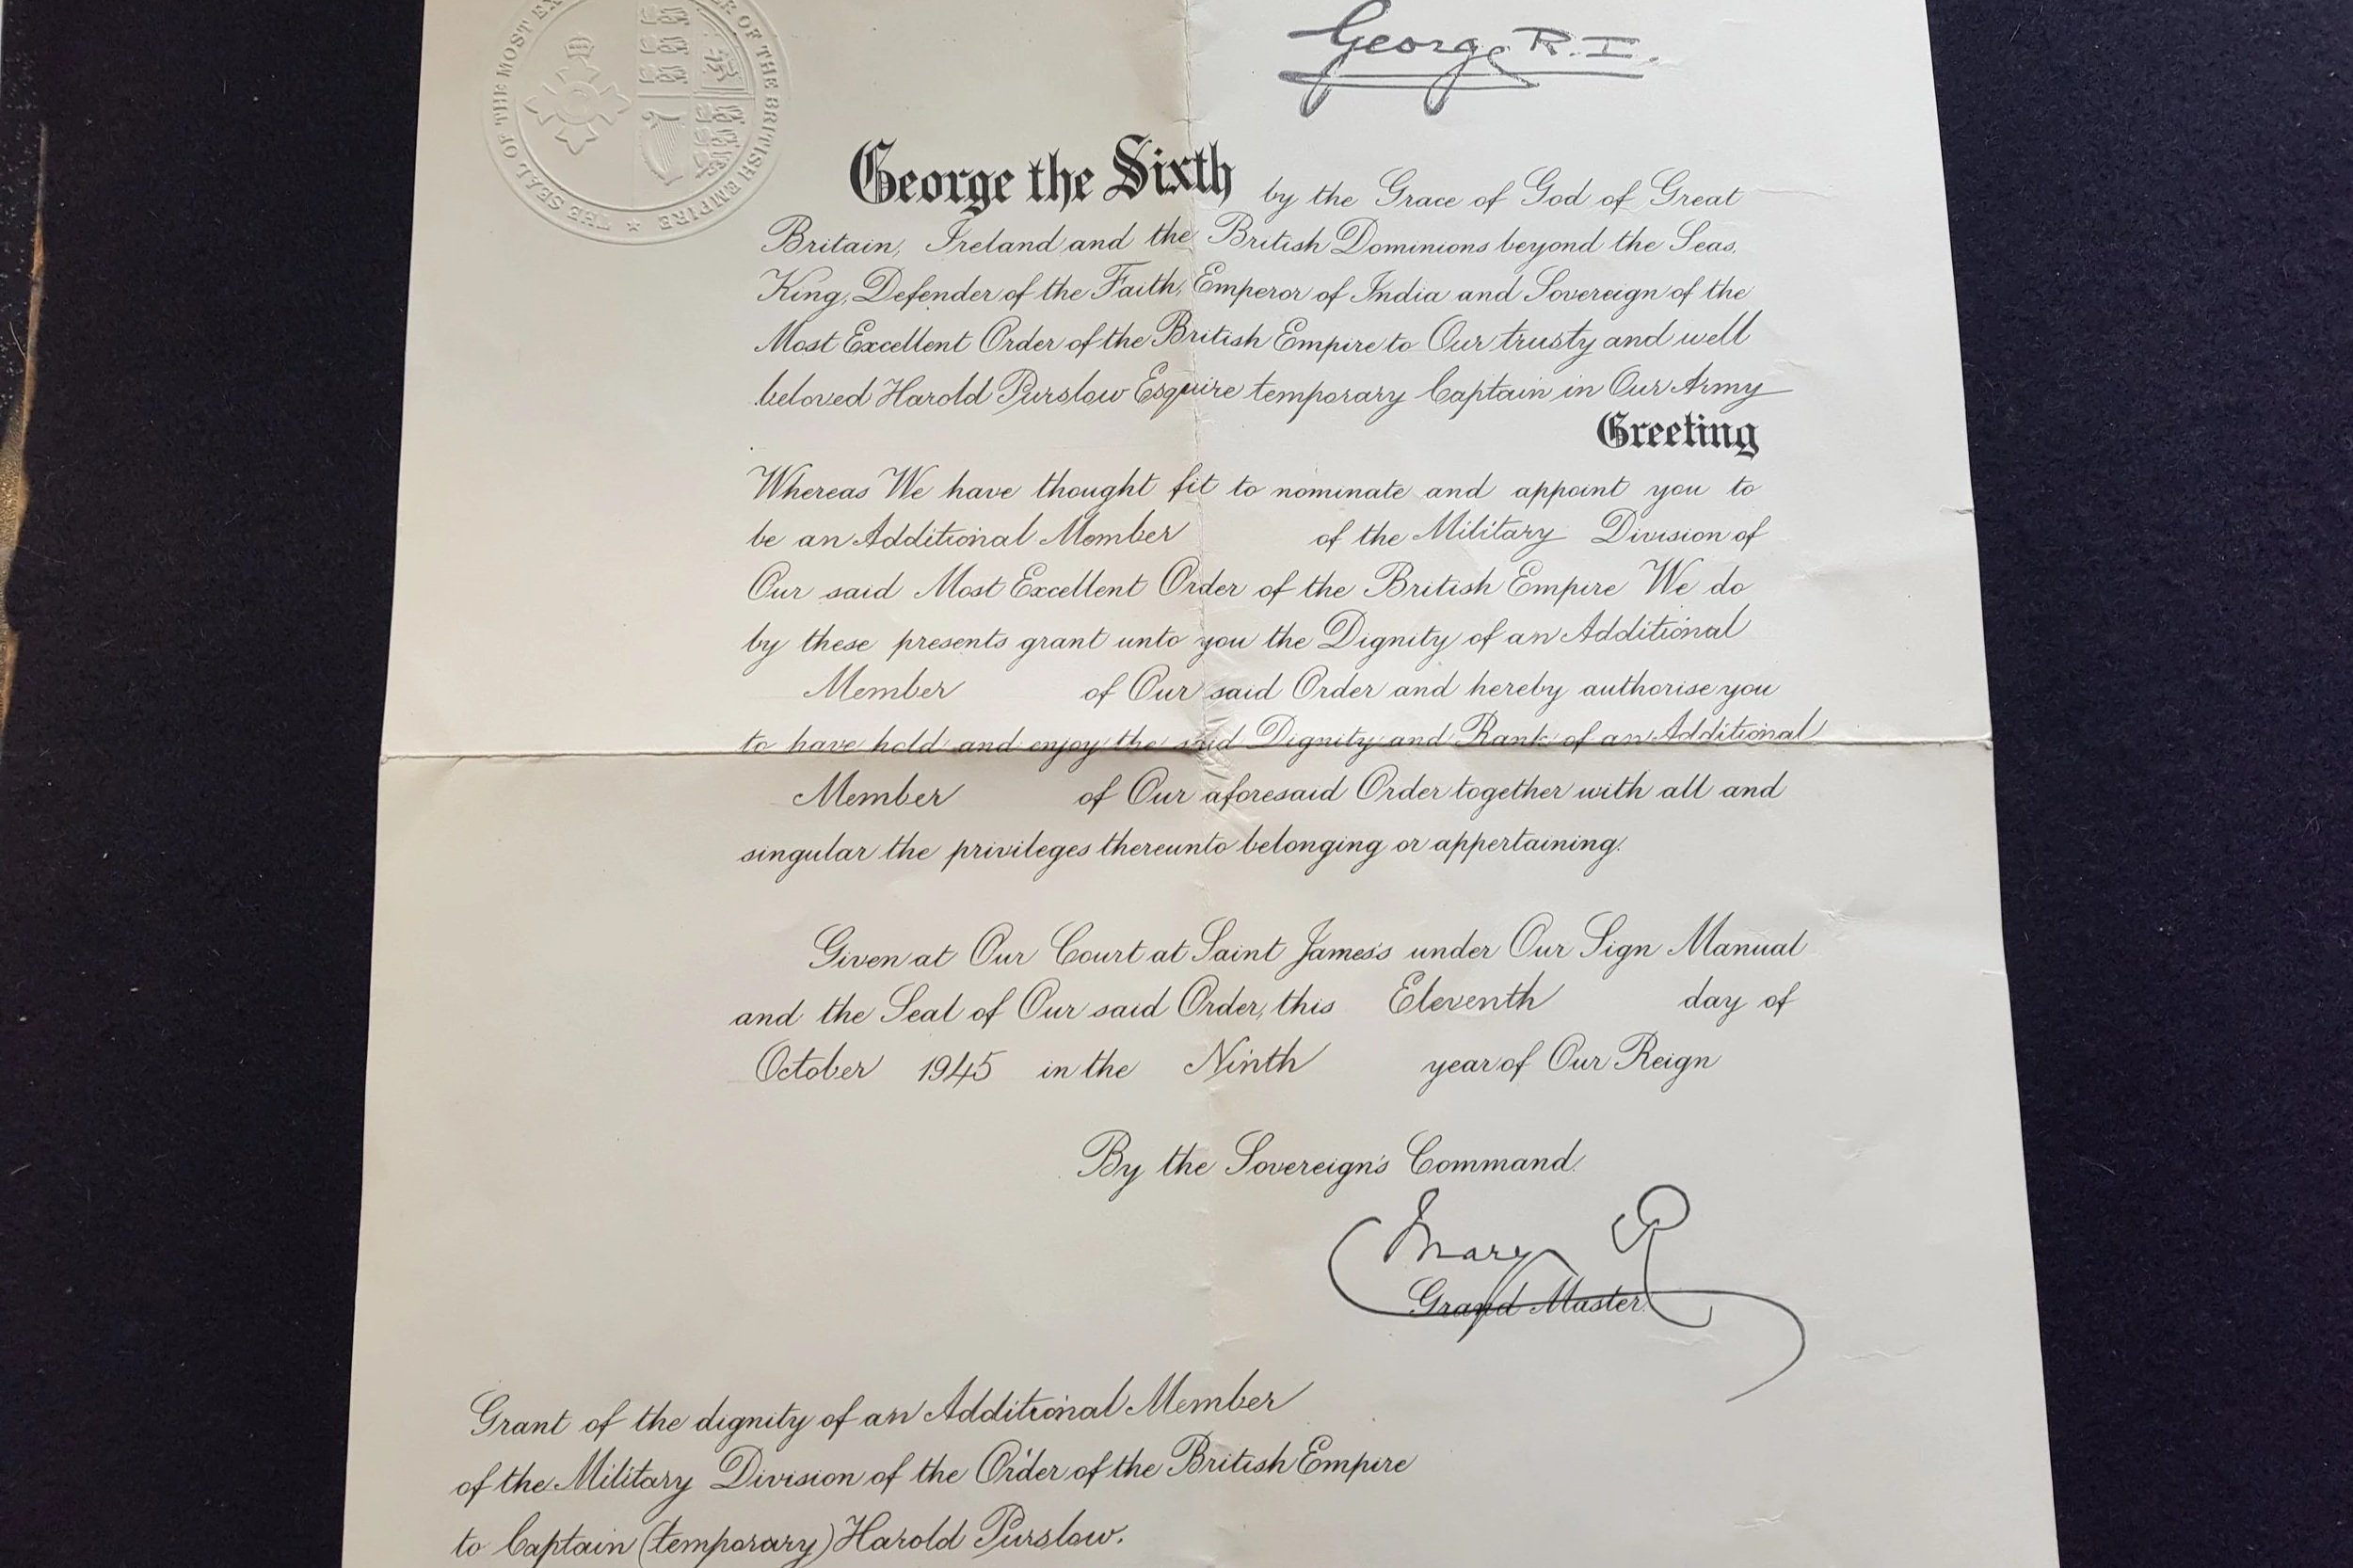 THE SEAL OF THE MOST EX R OF THE BRITISH EMPIRE ★
George R.I.
George the Sixth by the Grace of God of Great
Britain, Ireland and the British Dominions beyond the Seas,
King, Defender of the Faith, Emperor of India and Sovereign of the
Most Excellent Order of the British Empire to Our trusty and well
beloved Harold Purslow Esquire temporary Captain in Our Army
Greeting
Whereas We have thought fit to nominate and appoint you to
be an Additional Member of the Military Division of
Our said Most Excellent Order of the British Empire We do
by these presents grant unto you the Dignity of an Additional
Member of Our said Order and hereby authorise you
to have hold and enjoy the said Dignity and Rank of an Additional
Member of Our aforesaid Order together with all and
singular the privileges thereunto belonging or appertaining.
Given at Our Court at Saint James's under Our Sign Manual
and the Seal of Our said Order, this Eleventh day of
October 1945 in the Ninth year of Our Reign
By the Sovereign's Command.
Mary R
Grand Master.
Grant of the dignity of an Additional Member
of the Military Division of the Order of the British Empire
to Captain (temporary) Harold Purslow.